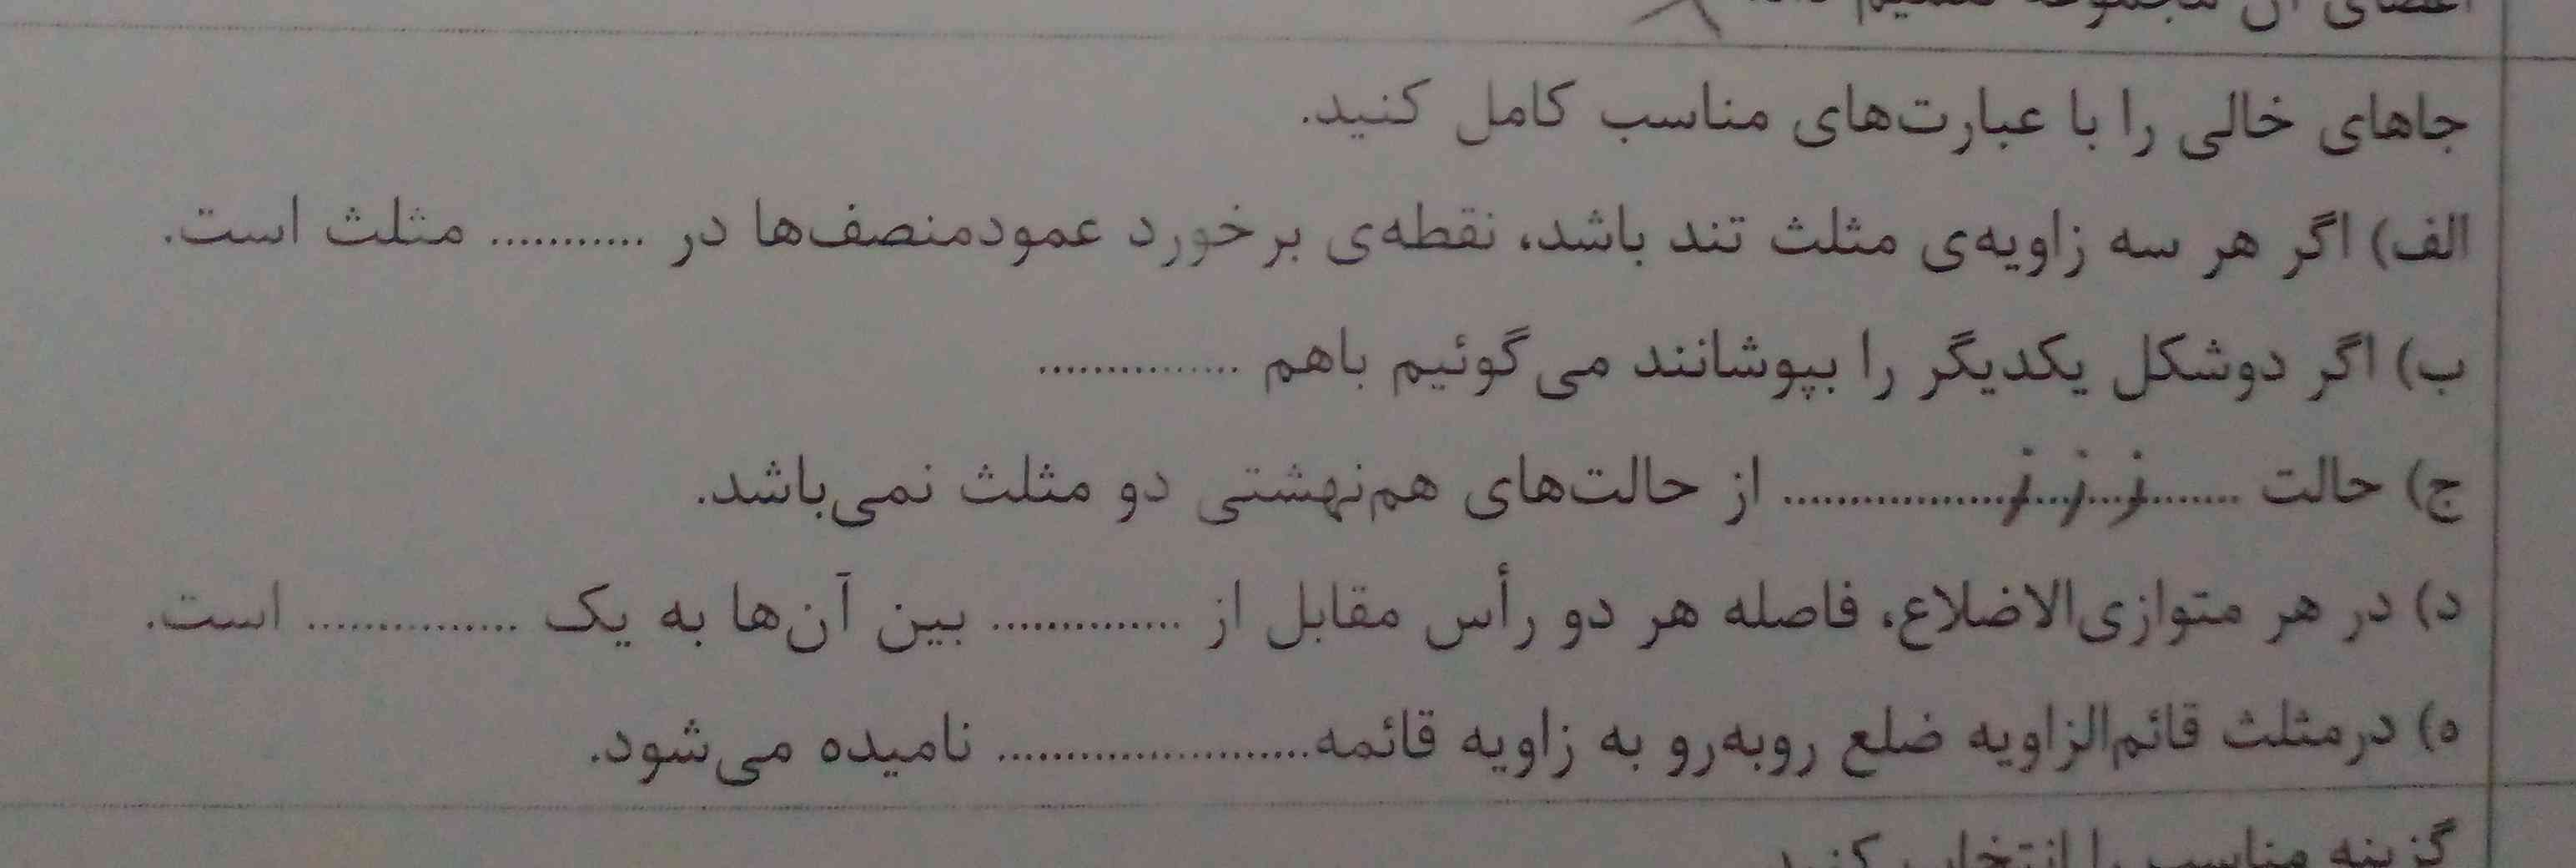 جاهای خالی را با عبارت‌های مناسب کامل کنید.
الف) اگر هر سه زاویه‌ی مثلث تند باشد، نقطه‌ی برخورد عمودمنصف‌ها در ........... مثلث است.
ب) اگر دوشکل یکدیگر را بپوشانند می‌گوئیم باهم ...............
ج) حالت ....... ز ز ز ................. از حالت‌های هم‌نهشتی دو مثلث نمی‌باشد.
د) در هر متوازی‌الاضلاع، فاصله هر دو رأس مقابل از .............. بین آن‌ها به یک ............... است.
ه) درمثلث قائم‌الزاویه ضلع روبه‌رو به زاویه قائمه....................... نامیده می‌شود.
گزینه مناسب را انتخاب کنید